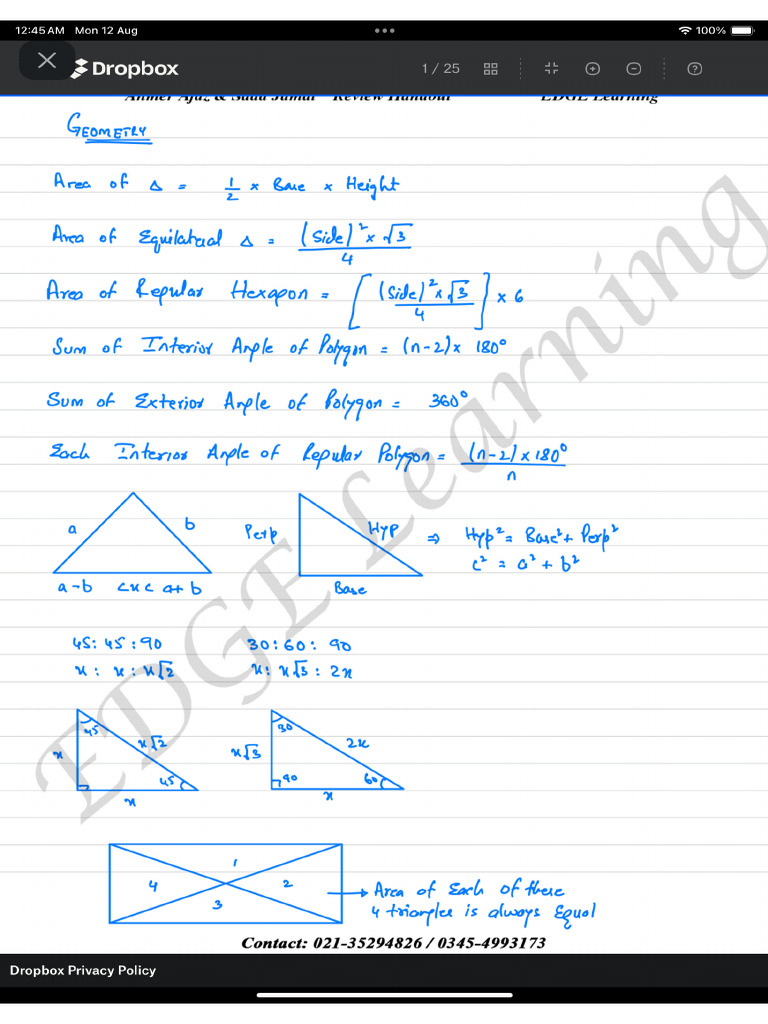 12:45 AM Mon 12 Aug
100%
Dropbox
1 / 25
Ahmer Ajaz & Saad Jamal Review Handout EDGE Learning
GEOMETRY
Area of Δ = 1/2 × Base × Height
Area of Equilateral Δ = (Side)² × √3 / 4
Area of Regular Hexagon = [ (Side)² × √3 / 4 ] × 6
Sum of Interior Angle of Polygon = (n-2) × 180°
Sum of Exterior Angle of Polygon = 360°
Each Interior Angle of Regular Polygon = (n-2) × 180° / n
a b
a-b < x < a+b
Perp Hyp
Base
⇒ Hyp² = Base² + Perp²
c² = a² + b²
45: 45 : 90
x : x : x√2
30 : 60 : 90
x : x√3 : 2x
45
x x√2
45
x
30
x√3 2x
90 60
x
1
4 2
3
→ Area of Each of these
4 triangles is always Equal
EDGE Learning
Contact: 021-35294826 / 0345-4993173
Dropbox Privacy Policy